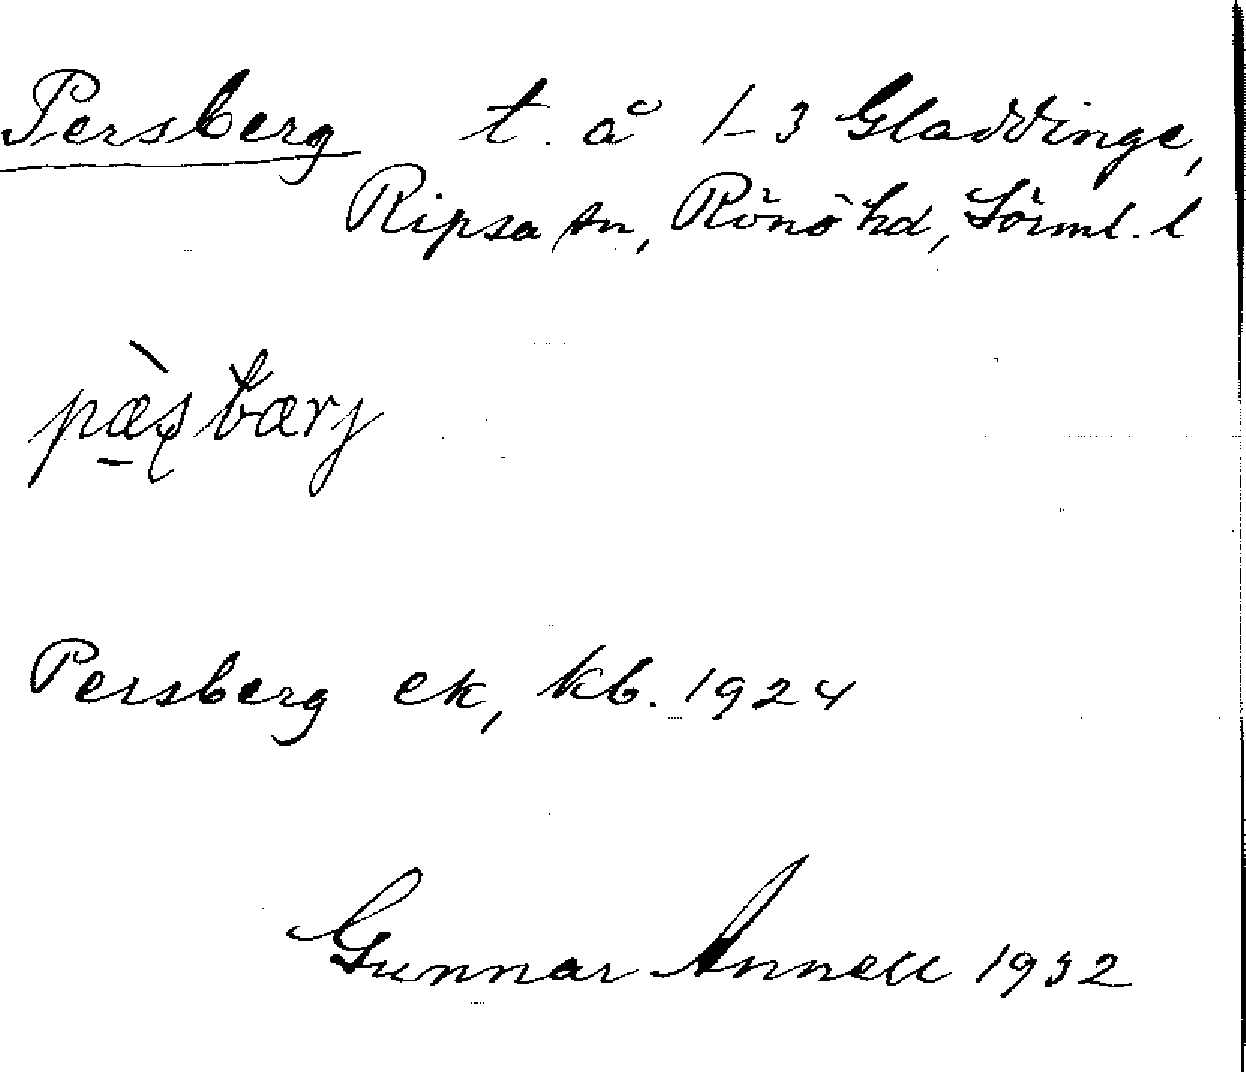 Persberg t. å 1-3 Gladdinge,
Ripsa sn, Rönö hd, Sörml. l
pæ̠̀ʂbærj
Persberg ek, kb. 1924
Gunnar Annell 1932